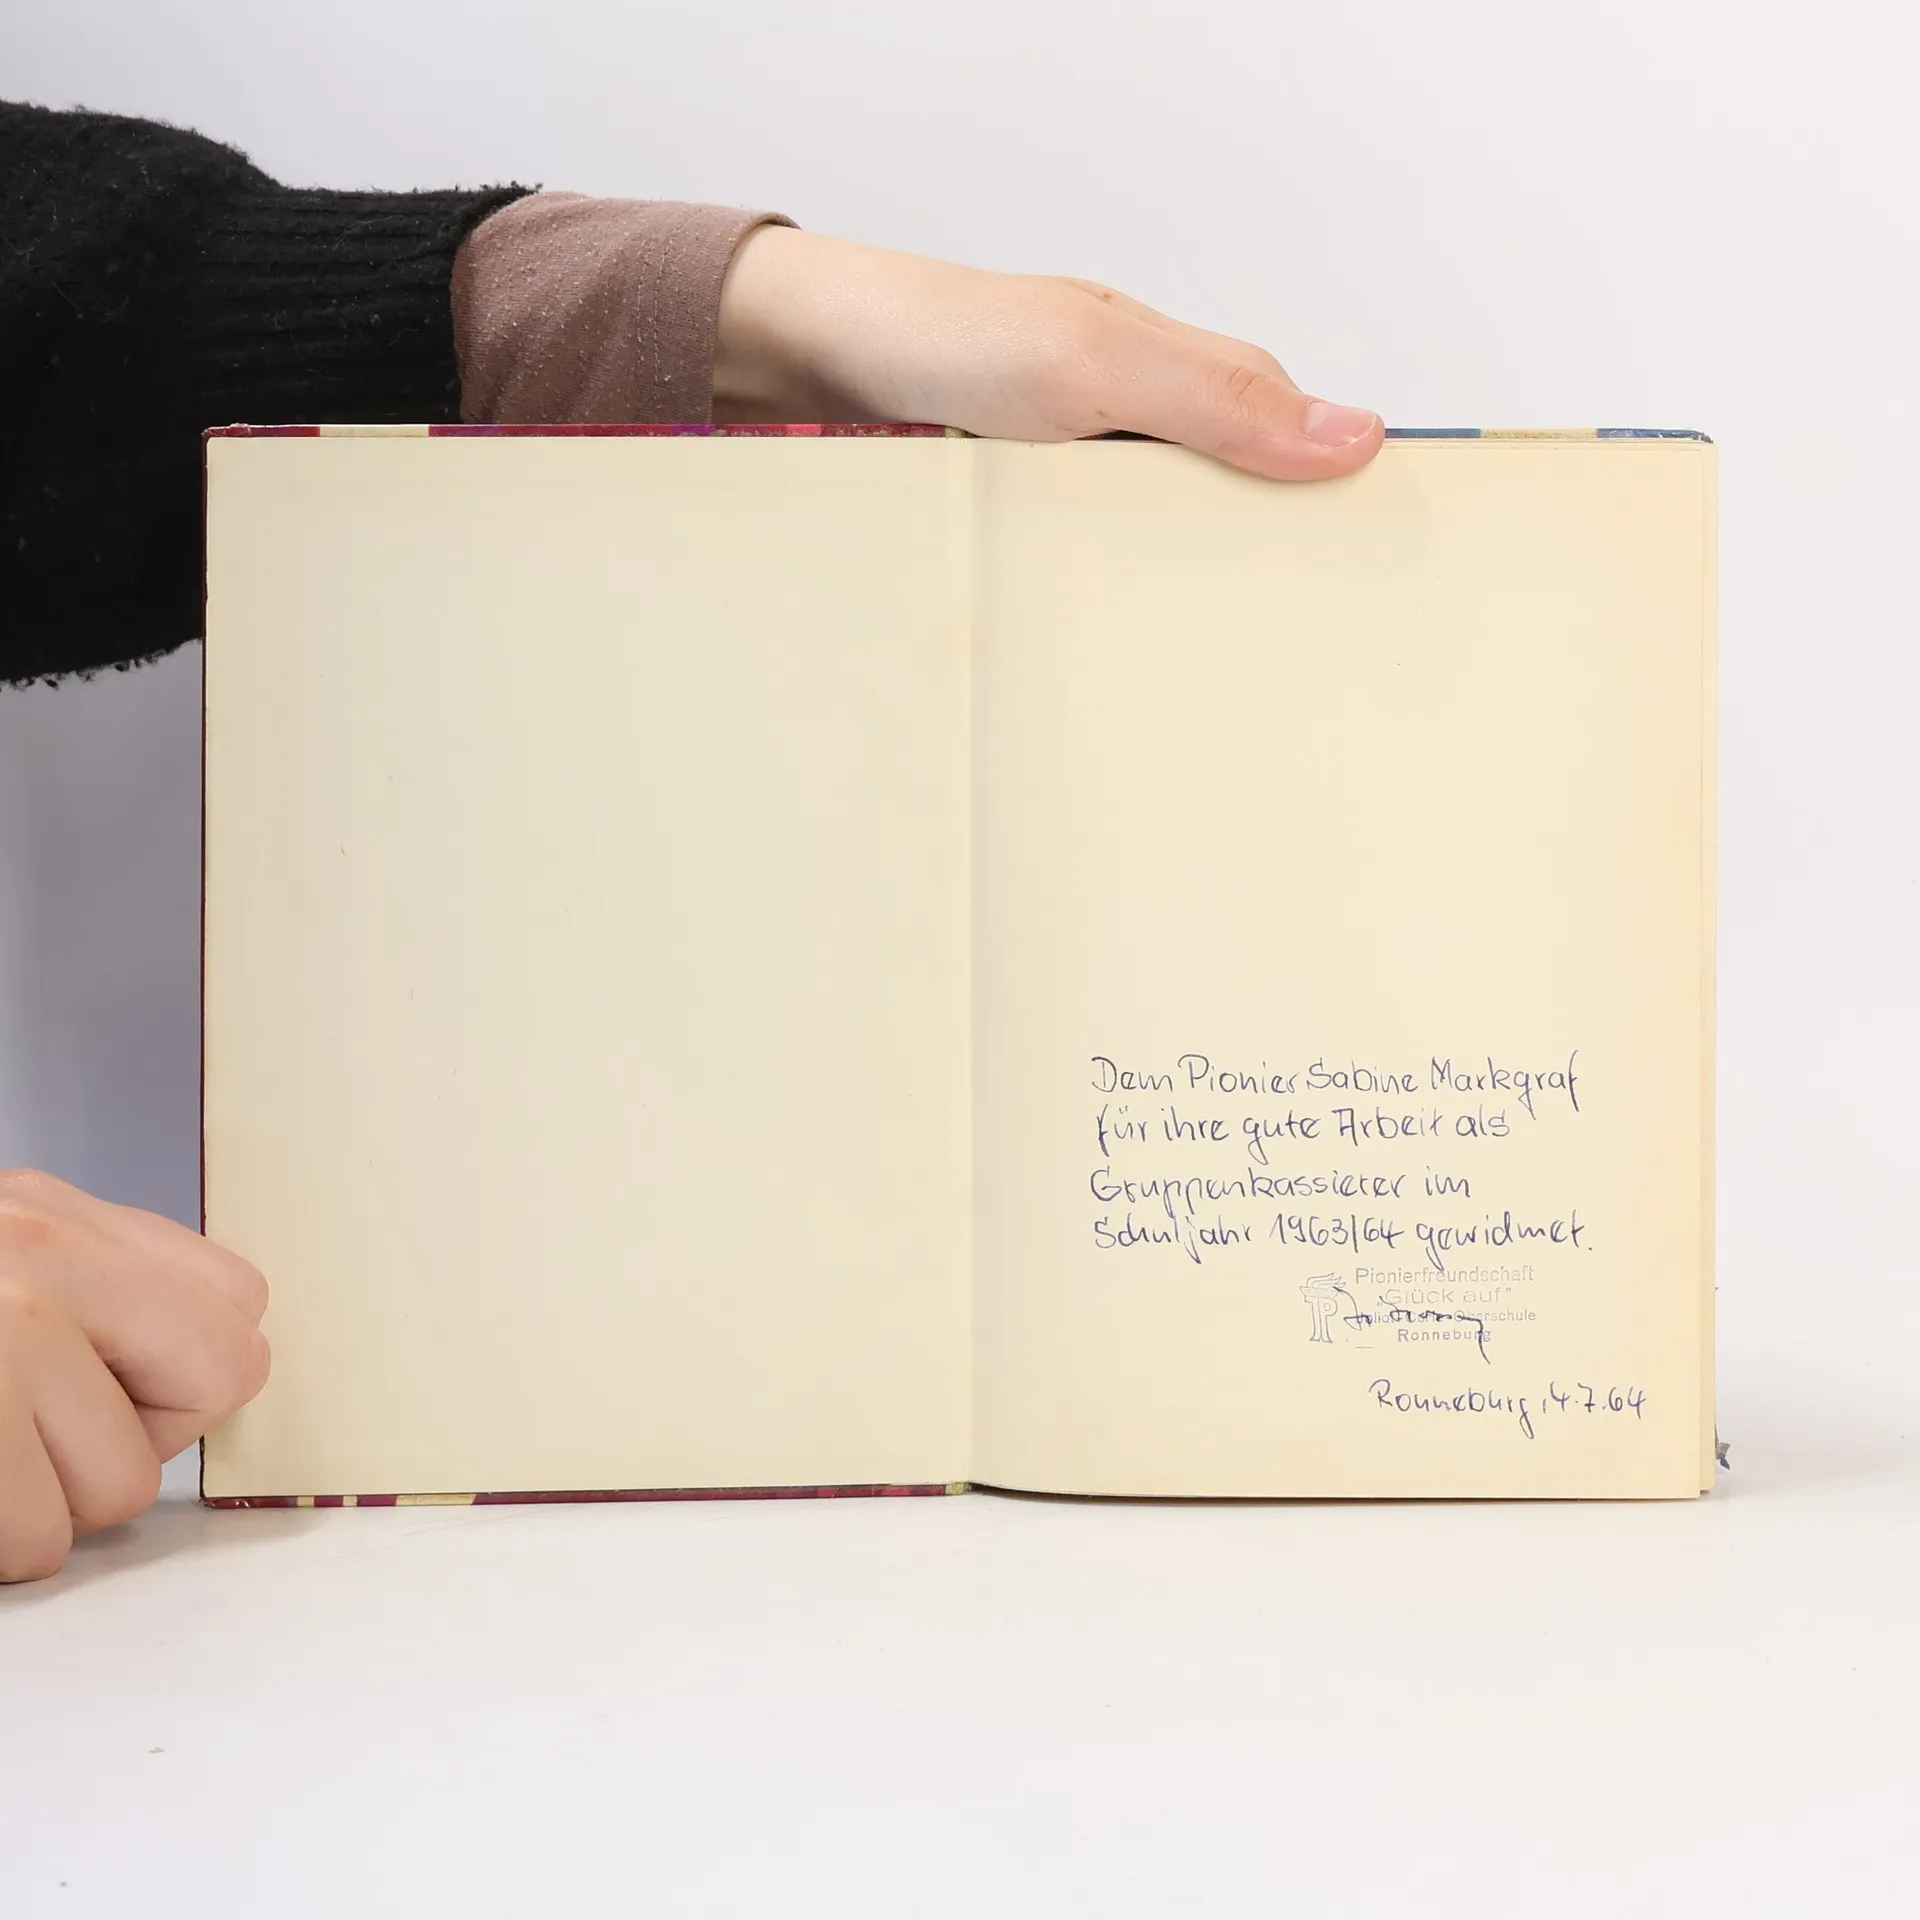 Dem Pionier Sabine Markgraf
für ihre gute Arbeit als
Gruppenkassierer im
Schuljahr 1963/64 gewidmet.
Pionierfreundschaft
„Glück auf"
Joliot-Curie-Oberschule
Ronneburg
Ronneburg, 4.7.64